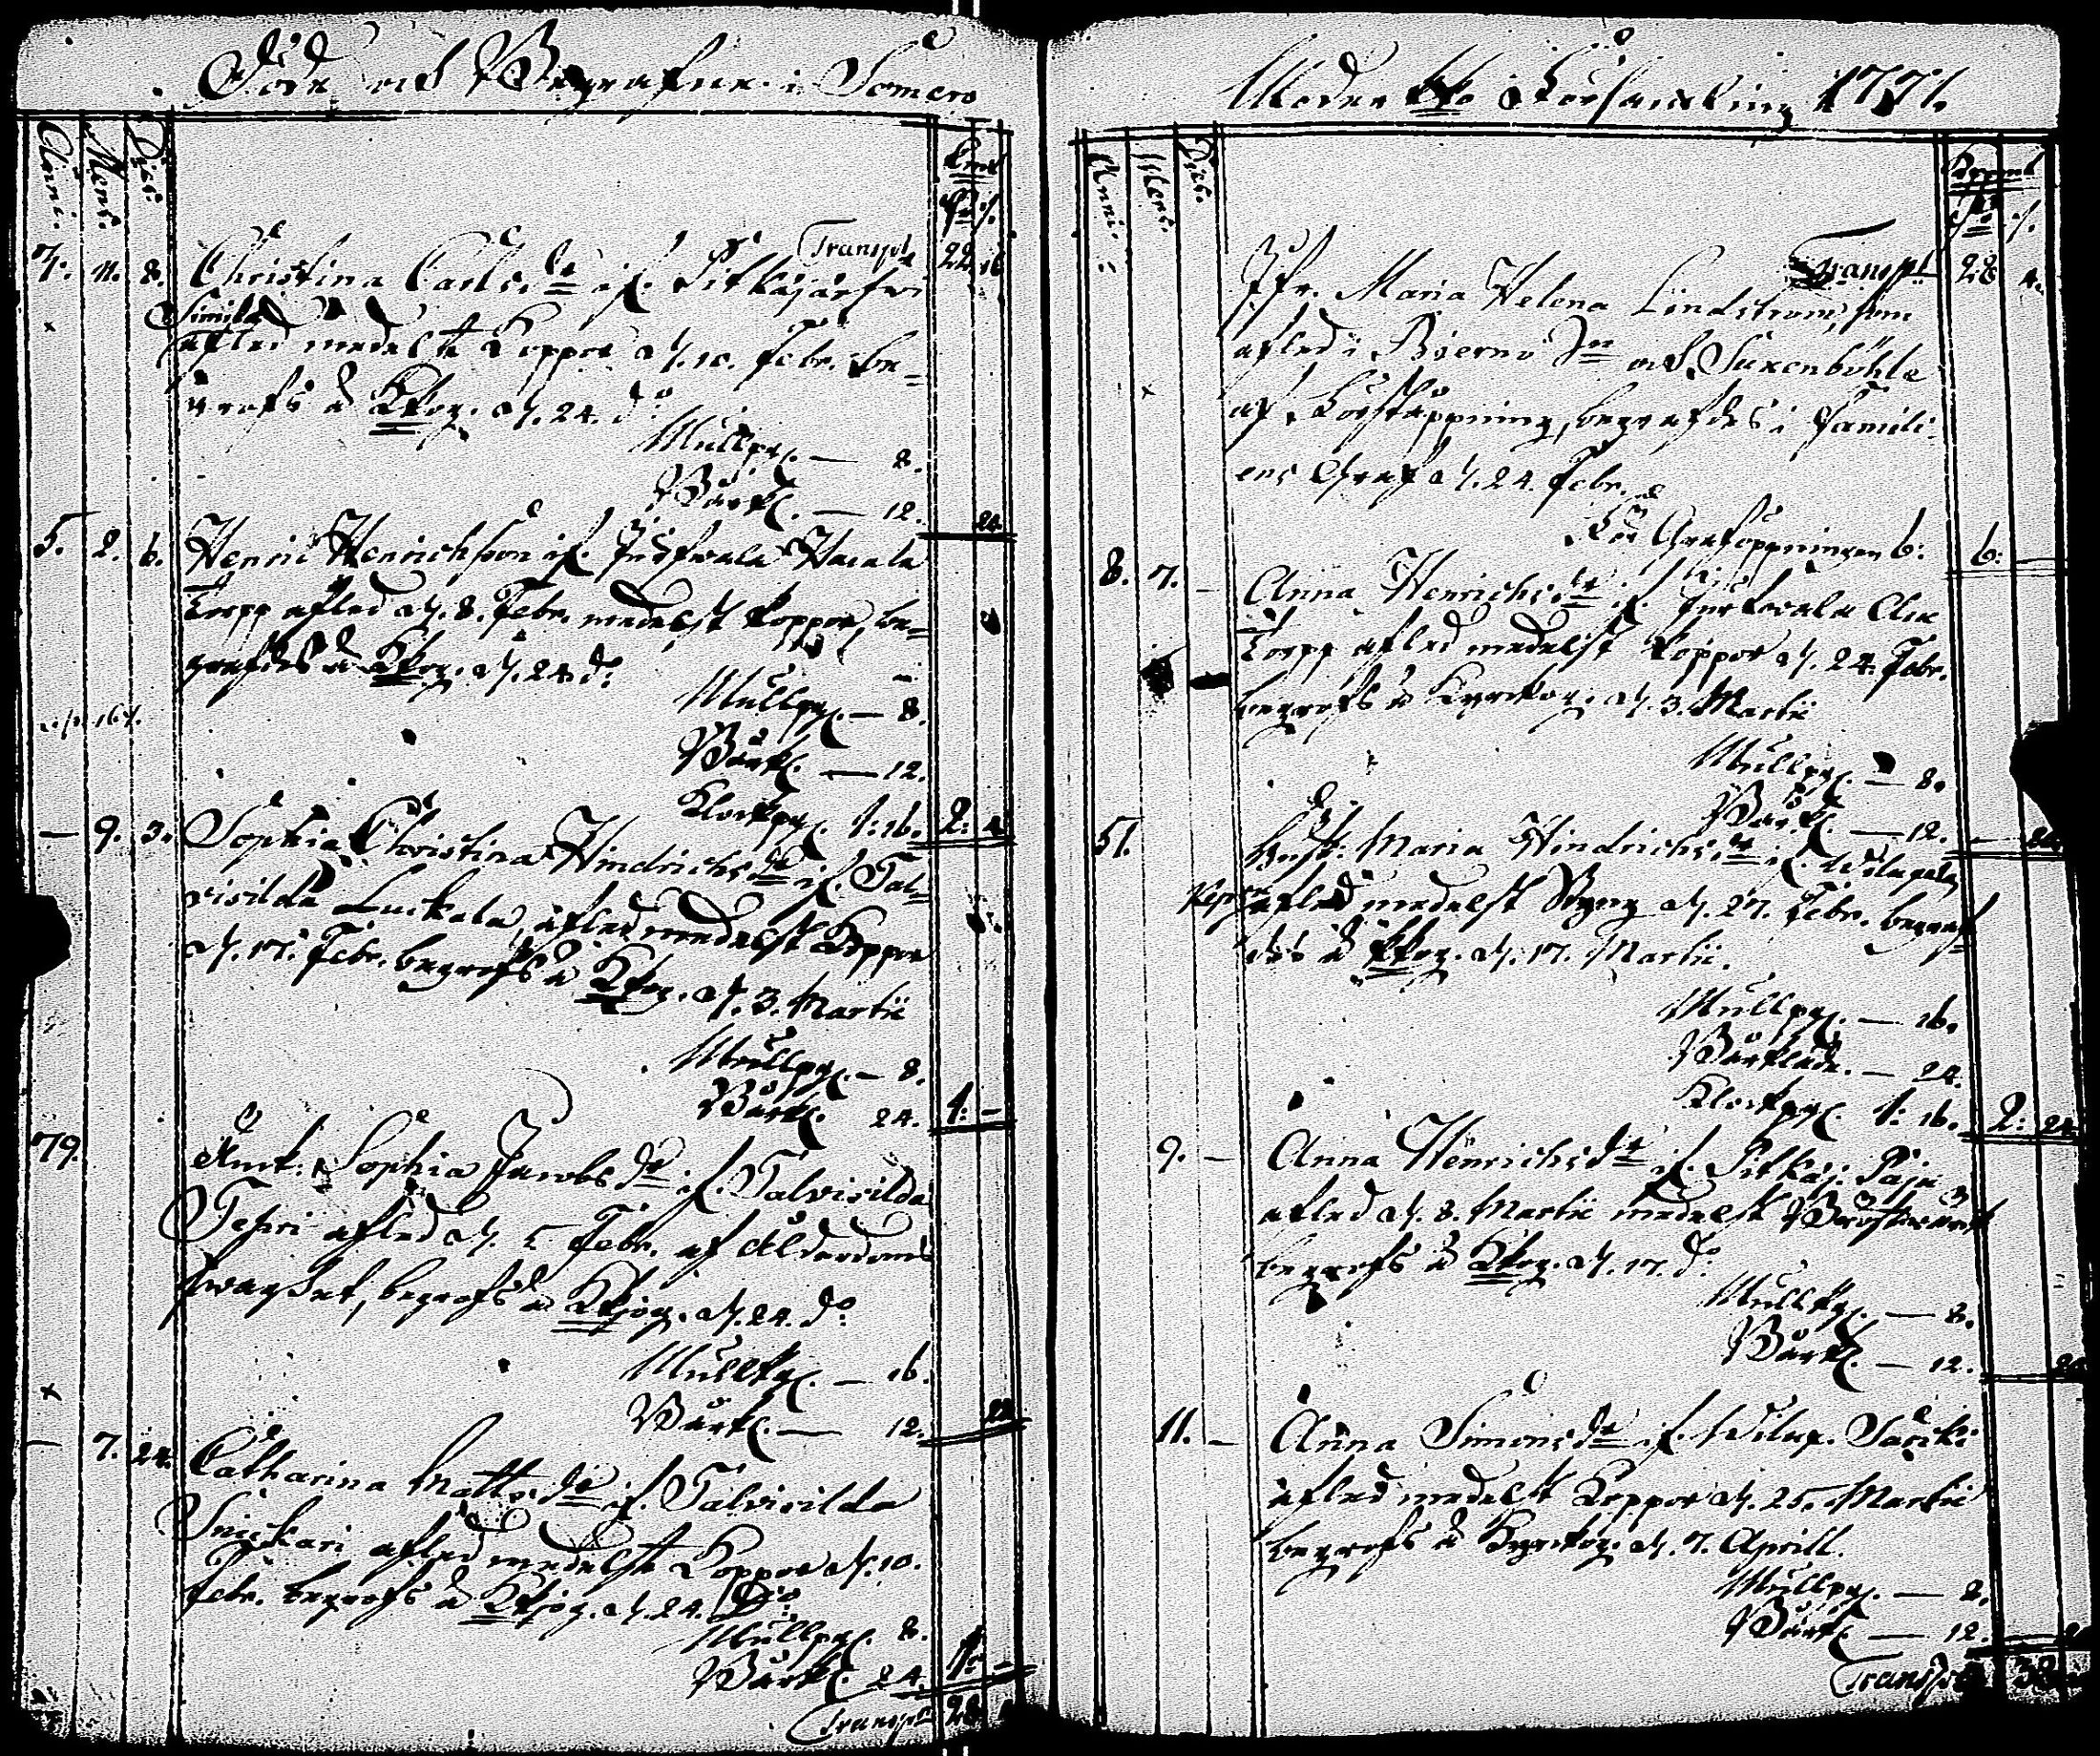 Döde och Begrafne i Somero
Anni: Mens: Dies:
Transpt 22. 16
7. 11. 8. Christina Carlsdr ifr. Pitkäjärfwi
Simila
afled medelst Koppor d. 10. Febr. be=
grofs å Kkog. d. 24. do
Mullpg. — 8.
Bårkl. — 12.
5. 2. 6. Henric Henrichsson ifr.
Torp afled d. 8. Febr. medelst Koppor, be=
grafdes å Kkog. d. 24 do
Mullpg. — 8.
Bårkl. — 12.
Klockpg. 1: 16. 2: 4
— 9. 3. Sophia Christina Hindrichsdr ifr. Tal=
visilda Luckala, afled medelst Koppor
d. 17. Febr. begrofs å Kkog. d. 3. Martii
Mullpg. — 8.
Bårkl. 24. 1: —
79. Enk: Sophia Jacobsdr ifr. Talvisilda
afled d. 5 Febr. af Ålderdoms
swaghet, begrofs å Kkjog. d. 24. do
Mullpg. — 16.
Bårkl. — 12.
— 7. 24. Catharina Mattsdr ifr. Talvisilda
Snickari afled medelst Koppor d. 10.
Febr. begrofs å Kkjog. d. 24. do
Mullpg. 8.
Bårkl. 24. 1: —
Transpt
Moder Kko Församling 1771.
Anni: Mens: Dies:
Transpt 28 4.
Jfr. Maria Helena Lindström, som
afled i Bierno Sn och
af Förstoppning, begrafdes i Famili=
ens Graf d. 24. Febr.
För Graföppningen 6: 6: —
8. 7. — Anna Henrichsdr ifr.
Torp afled medelst Koppor d. 24. Febr.
begrofs å Kyrkog. d. 3. Martii
Mullpg. — 8.
Bårkl. — 12.
51. Hust: Maria Hindrichsdr ifr.
afled medelst Styng d. 27. Febr. begraf=
des å Kkog. d. 17. Martii.
Mullpg. — 16.
Bårkläde. — 24.
Klockpg. 1: 16. 2: 24.
9. — Anna Henrichsdr ifr. Pitkäj. Paju
afled d. 8. Martii medelst Bröstwärk
begrofs å Kkog. d. 17. do
Mullpg. — 8.
Bårkl. — 12.
11. — Anna Simonsdr ifr.
afled medelst Koppor d. 25. Martii
begrofs å Kyrkog. d. 7. Aprill.
Mullpg. — 8.
Bårkl. — 12.
Transpt